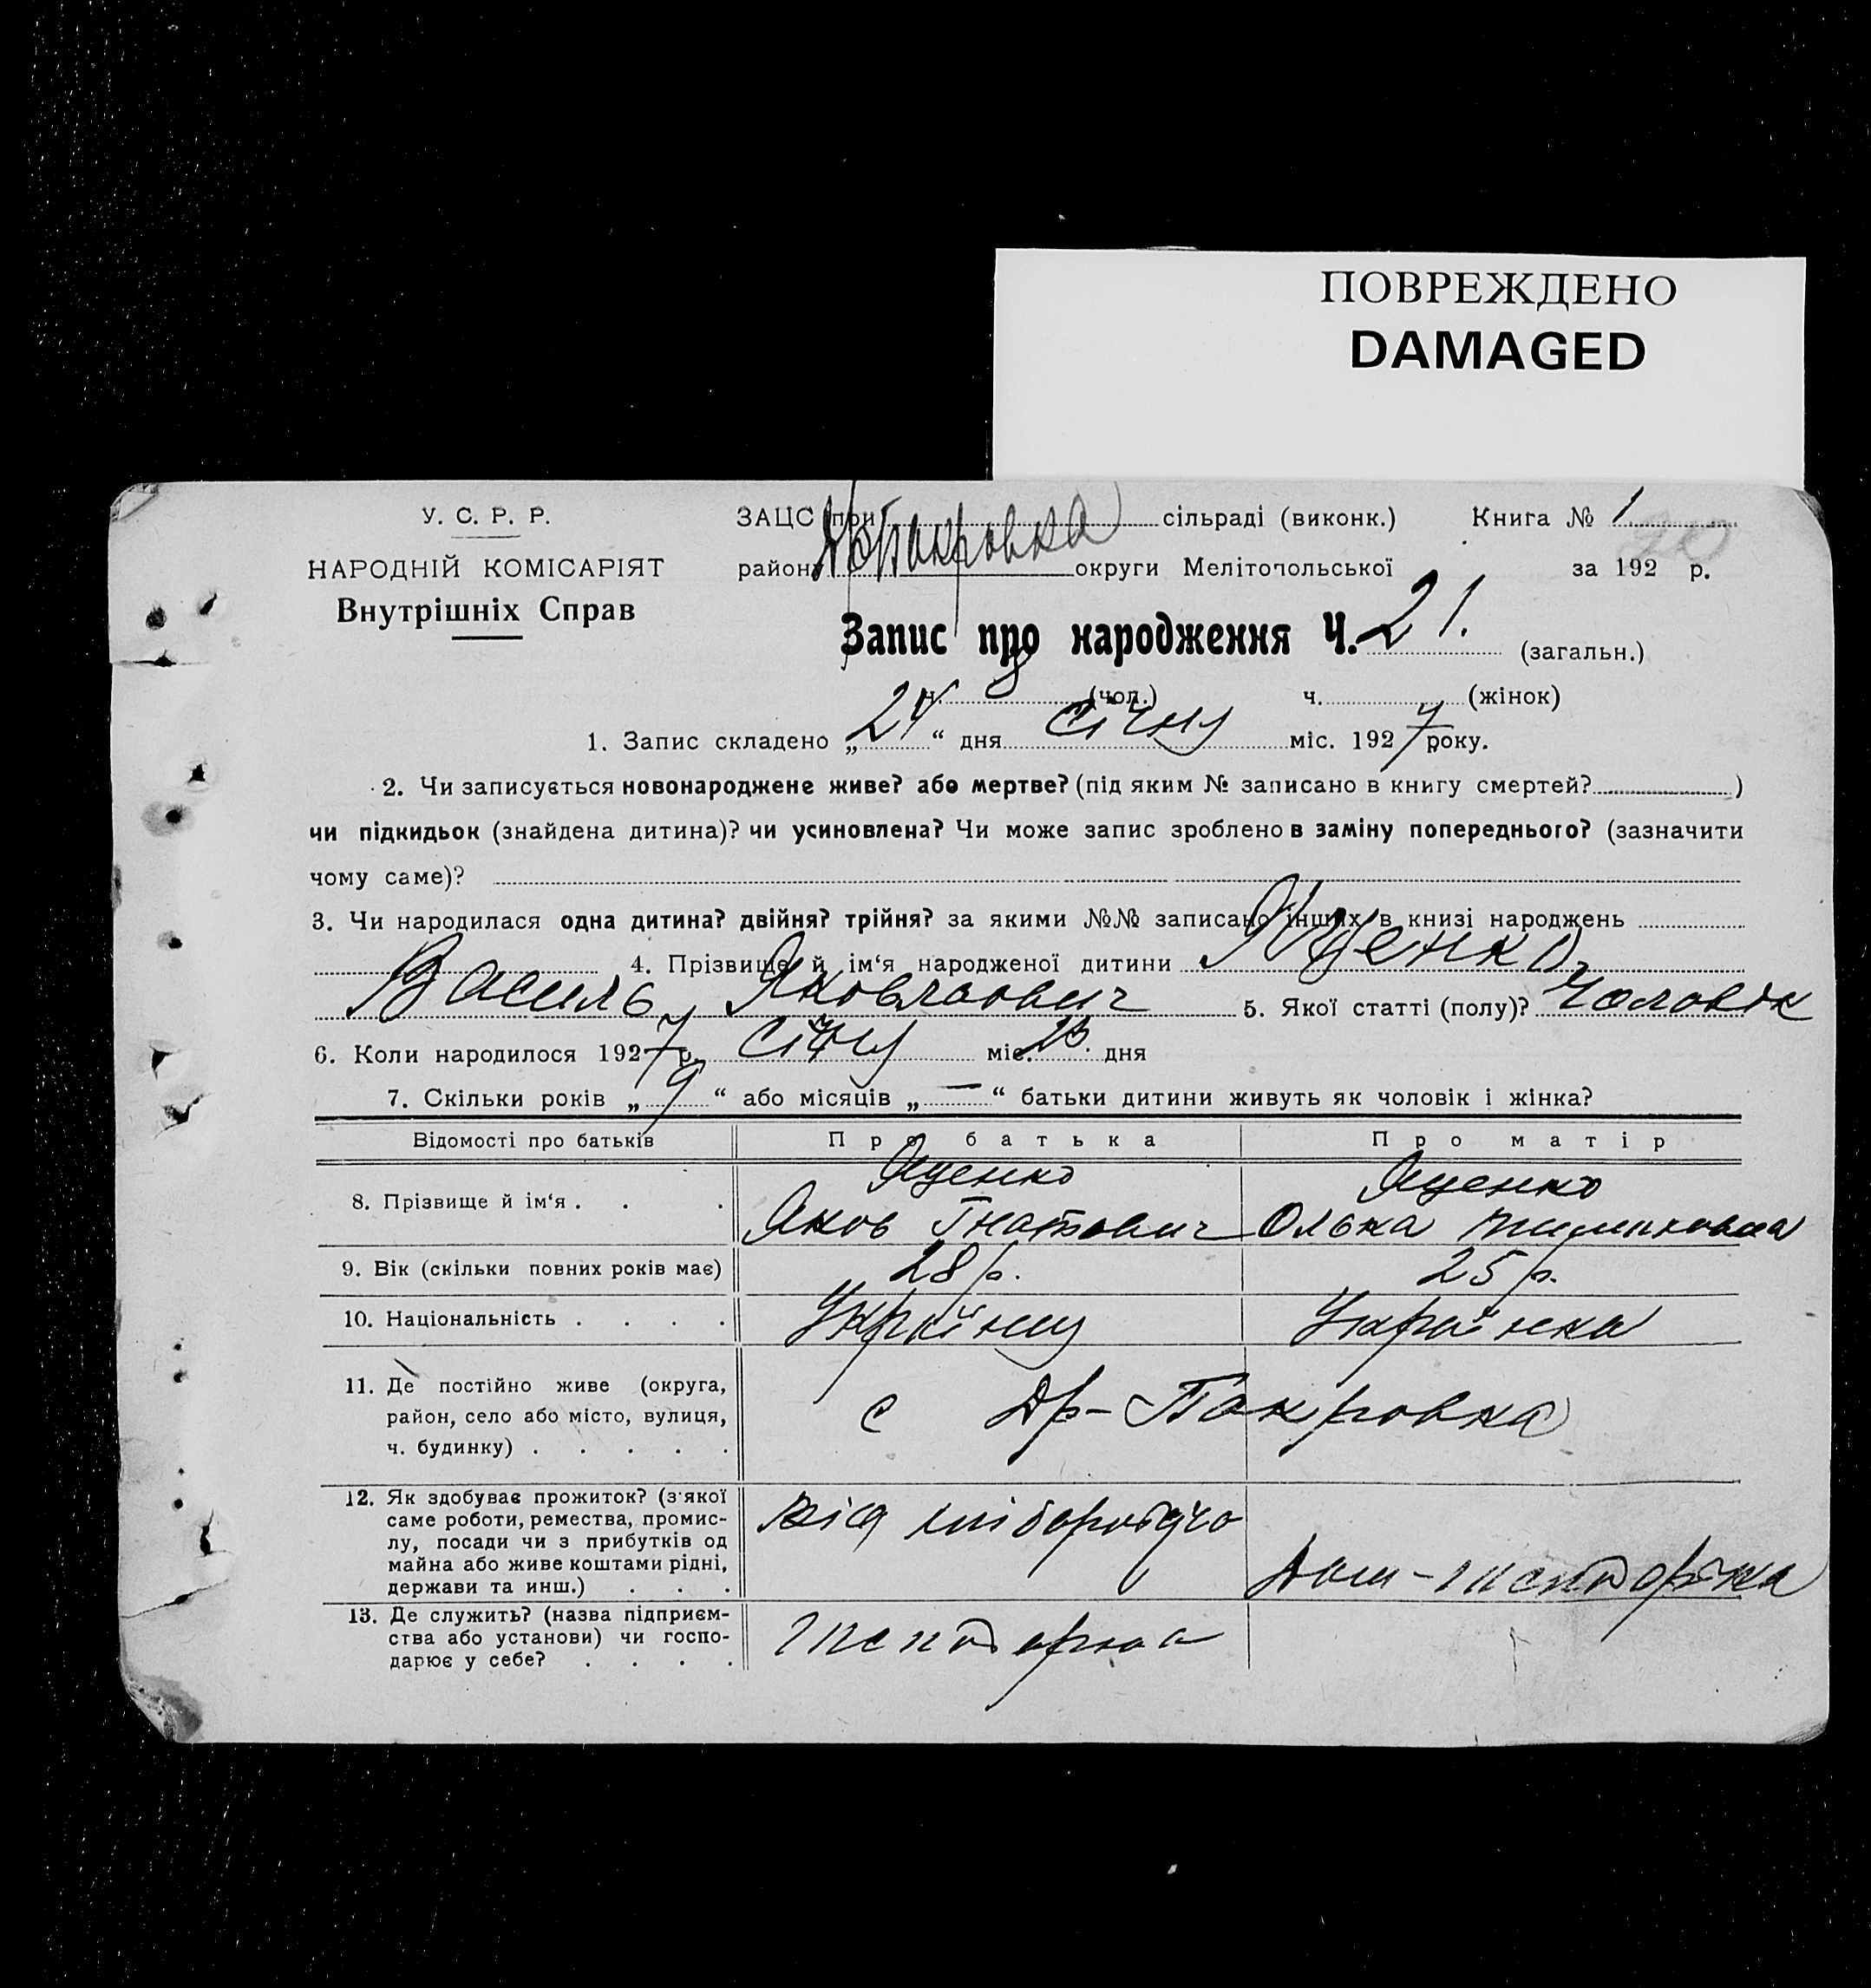 ПОВРЕЖДЕНО
DAMAGED
У. С. Р. Р.
НАРОДНІЙ КОМІСАРІЯТ
Внутрішніх Справ
ЗАЦС при сільраді (виконк.) Книга № 1
району Покровка округи Мелітопольської за 192 р.
Запис про народження Ч. 21. (загальн.)
ч. 8 (чол.) ч. (жінок)
1. Запис складено „24“ дня січню міс. 1927 року.
2. Чи записується новонароджене живе? або мертве? (під яким № записано в книгу смертей? )
чи підкидьок (знайдена дитина)? чи усиновлена? Чи може запис зроблено в заміну попереднього? (зазначити
чому саме)?
3. Чи народилася одна дитина? двійня? трійня? за якими №№ записано інших в книзі народжень
4. Прізвище й ім‘я народженої дитини Яценко
Василь Яковлович 5. Якої статті (полу)? Чоловік
6. Коли народилося 1927 р. січню міс. дня
7. Скільки років „9“ або місяців „—“ батьки дитини живуть як чоловік і жінка?
Відомості про батьків Про батька Про матір
8. Прізвище й ім‘я . . . Яценко Яценко
Яков Гнатович Олька
9. Вік (скільки повних років має) 28 р. 25 р.
10. Національність . . . . Україню Українка
11. Де постійно живе (округа,
район, село або місто, вулиця,
ч. будинку) . . . . .
с Др-Покровка
12. Як здобуває прожиток? (з якої
саме роботи, ремества, промис-
лу, посади чи з прибутків од
майна або живе коштами рідні,
держави та инш.) . . .
від
13. Де служить? (назва підприєм-
ства або установи) чи госпо-
дарює у себе? . . . .